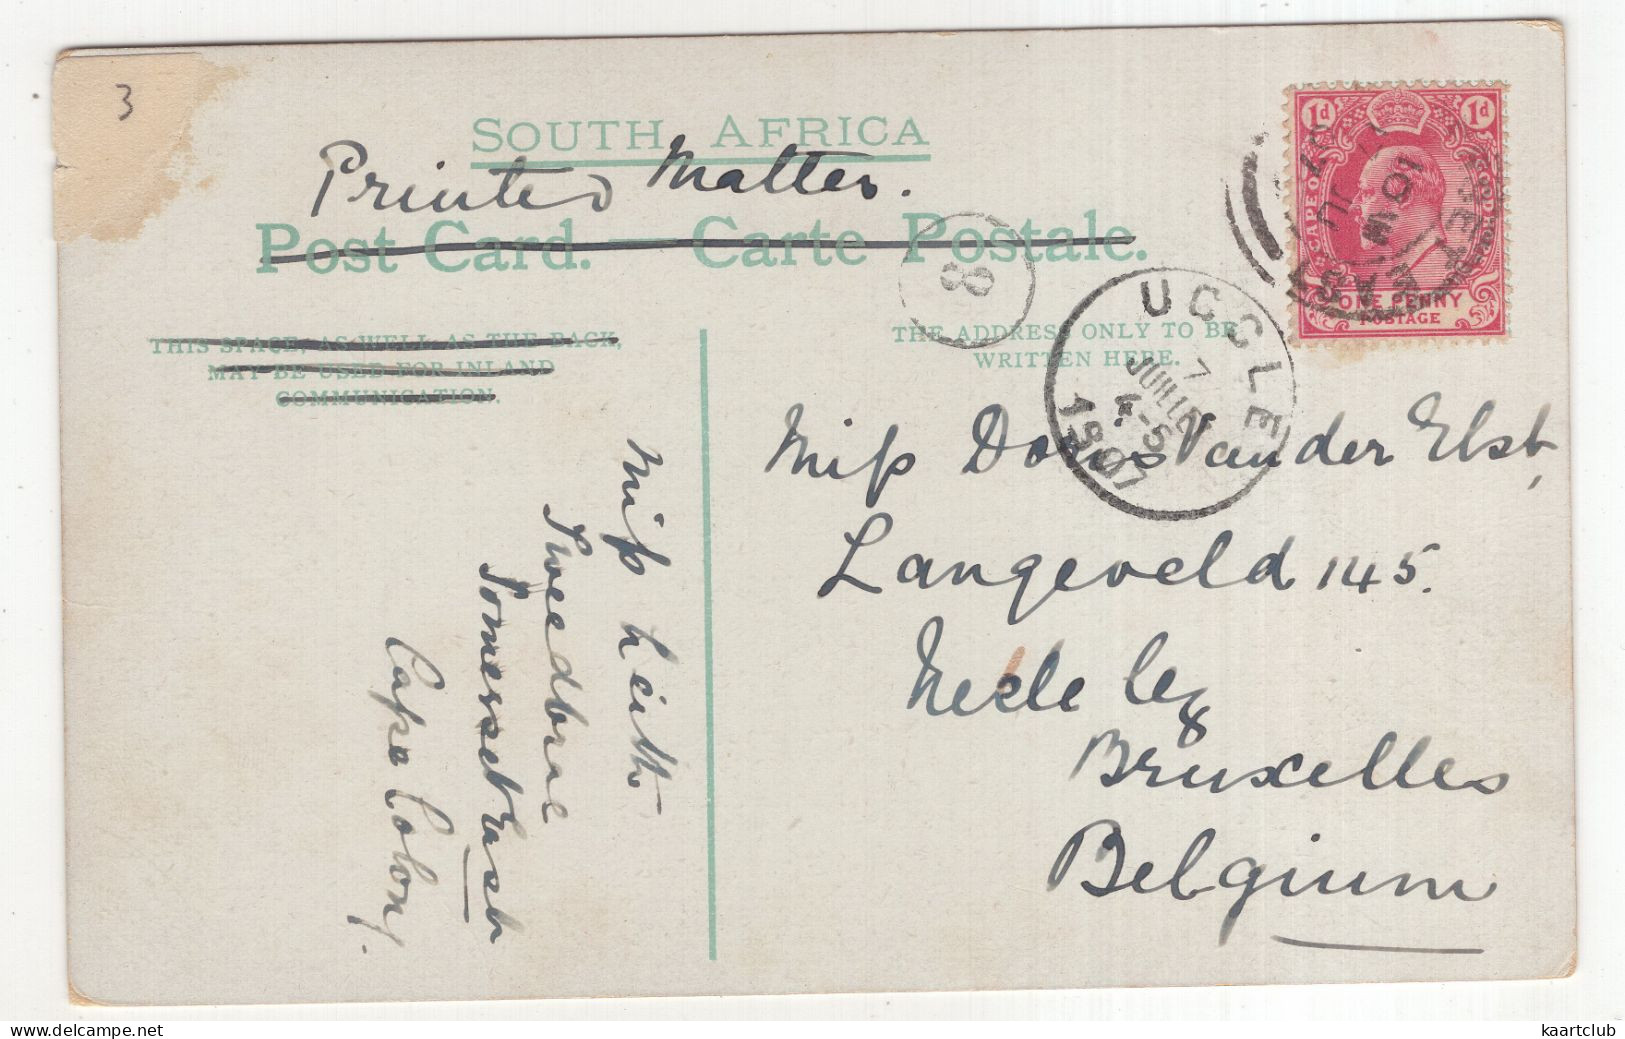 3
SOUTH AFRICA
Printed Matter.
Post Card. — Carte Postale.
8
THIS SPACE, AS WELL AS THE BACK,
MAY BE USED FOR INLAND
COMMUNICATION.
THE ADDRESS ONLY TO BE
WRITTEN HERE.
1d 1d
CAPE OF GOOD HOPE
ONE PENNY
POSTAGE
UCCLE
7
JUILLET
4-5
1907
Miss Doris Van der Elst,
Langeveld 145.
Bruxelles
Belgium
Miss Leith
Tweedbrae
Somerset East
Cape Colony.
www.delcampe.net
kaartclub